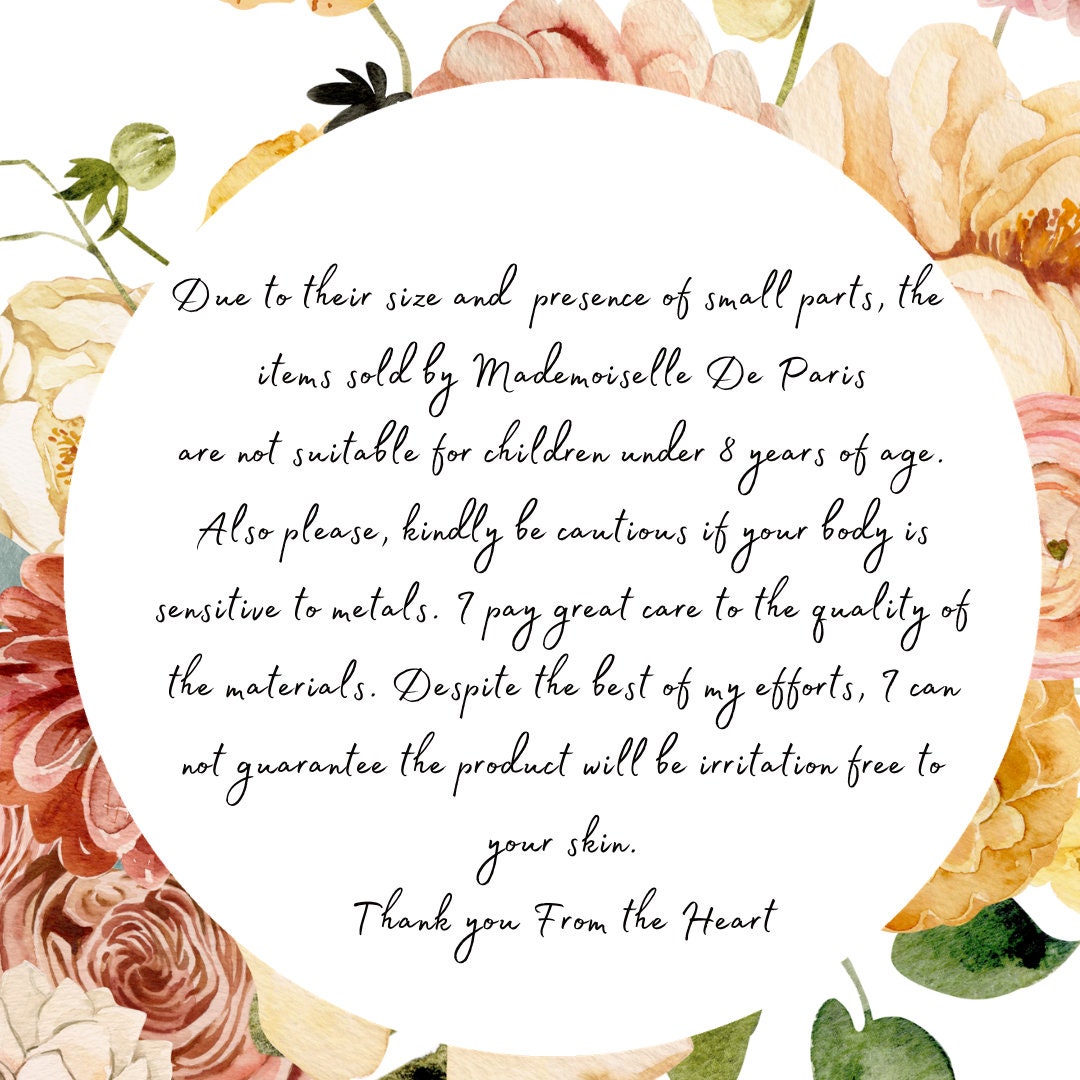 Due to their size and presence of small parts, the
items sold by Mademoiselle De Paris
are not suitable for children under 8 years of age.
Also please, kindly be cautious if your body is
sensitive to metals. I pay great care to the quality of
the materials. Despite the best of my efforts, I can
not guarantee the product will be irritation free to
your skin.
Thank you From the Heart